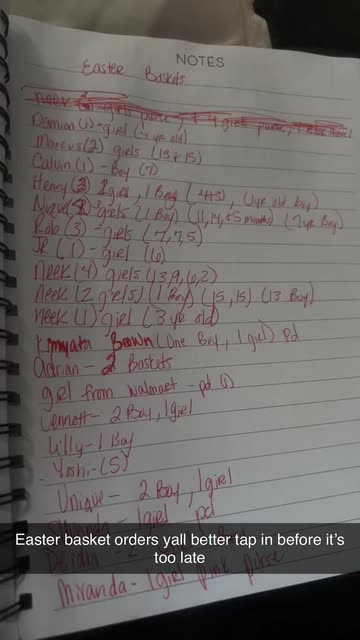 NOTES
Easter Baskets
Damion (1) - girl (4 yr old)
Marcus (2) girls (13 + 15)
Calvin (1) - Boy (7)
Henry (3) 2 girl, 1 Boy (4+5), (1yr old boy)
girls (1 Boy) (11, 14, +5 months) (7 yr Boy)
Rob (3) - girls (7, 7, 5)
JR (1) - girl (6)
Neek (4) girls (13, 9, 6, 2)
Neek (2 girls) (1 Boy) (15, 15) (13 Boy)
Neek (1) girl (3 yr old)
Brown (One Boy, 1 girl) Pd
Adrian - 2 Baskets
girl from walmart - pd (1)
Lennett - 2 Boy, 1 girl
Lilly - 1 Boy
Yoshi - (5)
Unique - 2 Boy, 1 girl
- 1 girl pd
Easter basket orders yall better tap in before it's
too late
Deidra - 2
Miranda - 1 girl pink purse